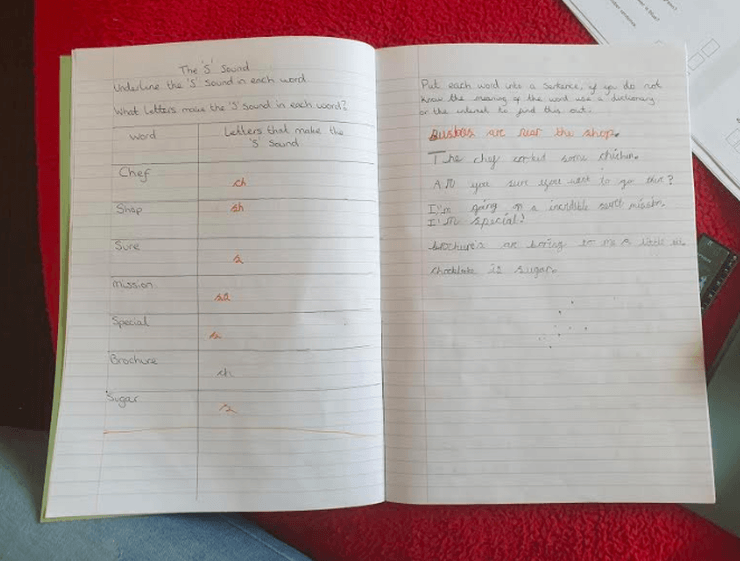 The 'S' Sound
Underline the 'S' Sound in each word.
What letters make the 'S' Sound in each word?
word
Letters that make the
'S' Sound
Chef
ch
Shop
sh
Sure
s
mission
ss
Special
Brochure
ch
Sugar
s
Put each word into a sentence, if you do not
know the meaning of the word use a dictionary
or the internet to find this out.
are near the shop.
The chef some chicken.
you sure you want to go
I'm going on a incredible mission.
I'm special!
are boring to
is sugar.